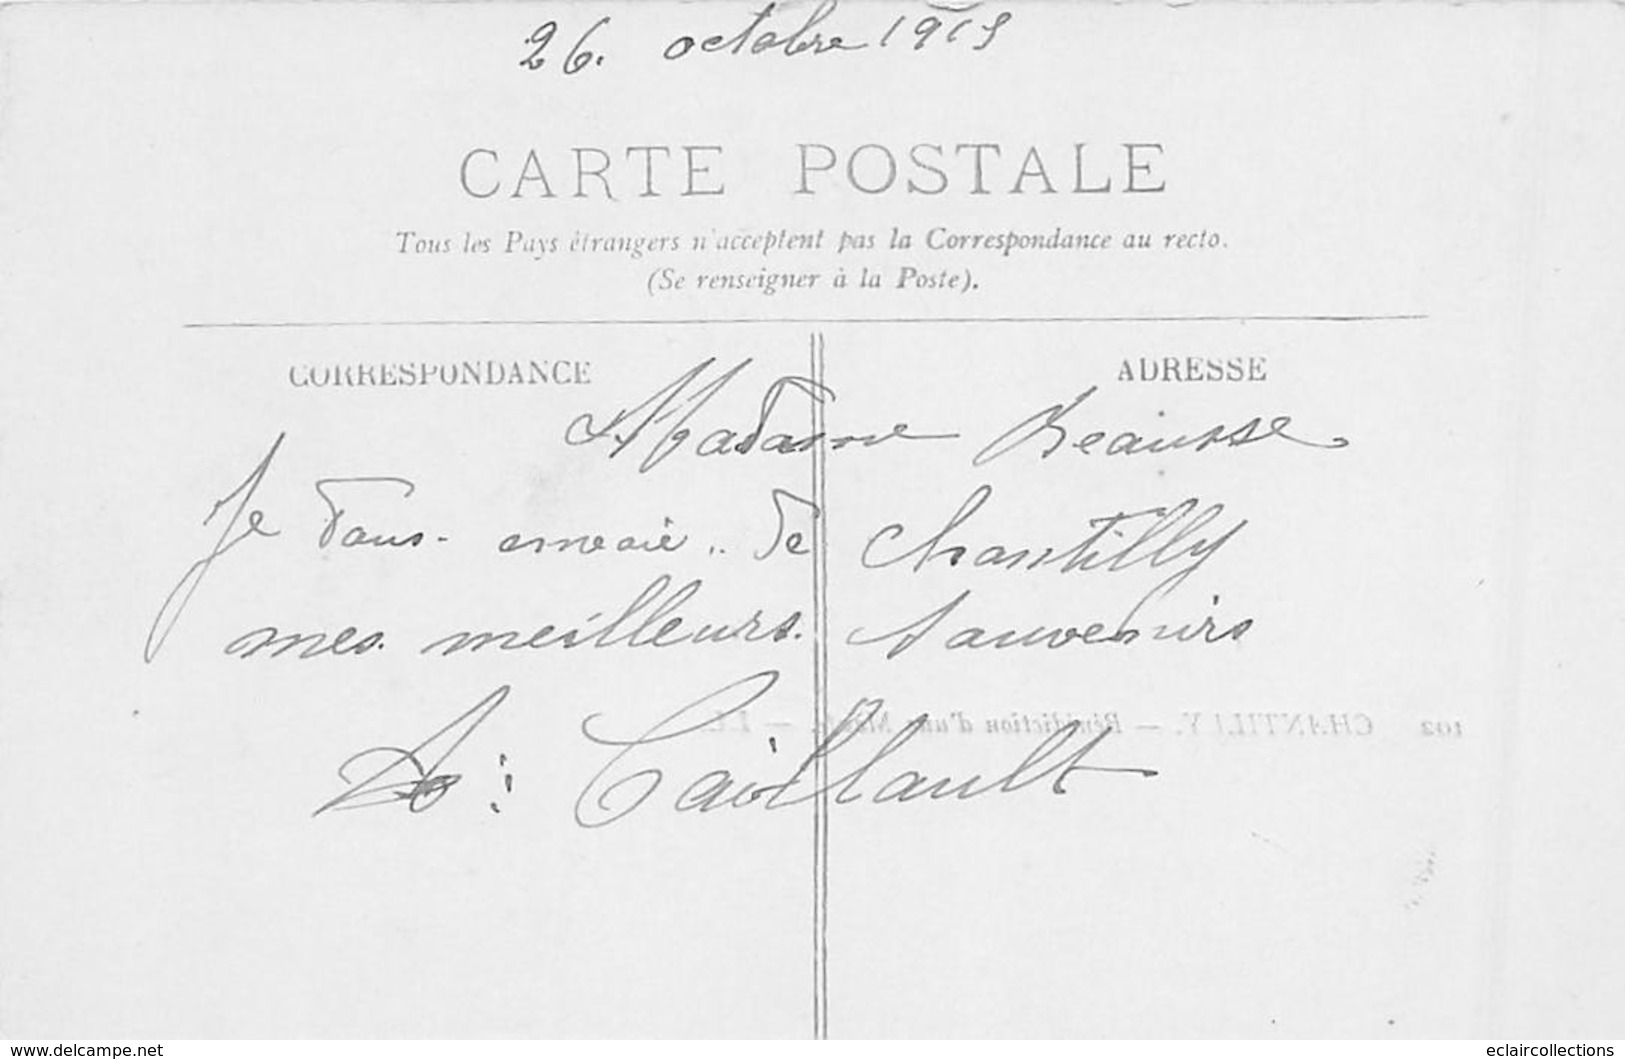 26. octobre 1915
CARTE POSTALE
Tous les Pays étrangers n'acceptent pas la Correspondance au recto.
(Se renseigner à la Poste).
CORRESPONDANCE
ADRESSE
Madame Beausse
Je vous envoie de Chantilly
mes meilleurs souvenirs
A: Caillault
102 CHANTILLY. — Bénédiction d'une Meute. — LL.
www.delcampe.net
eclaircollections